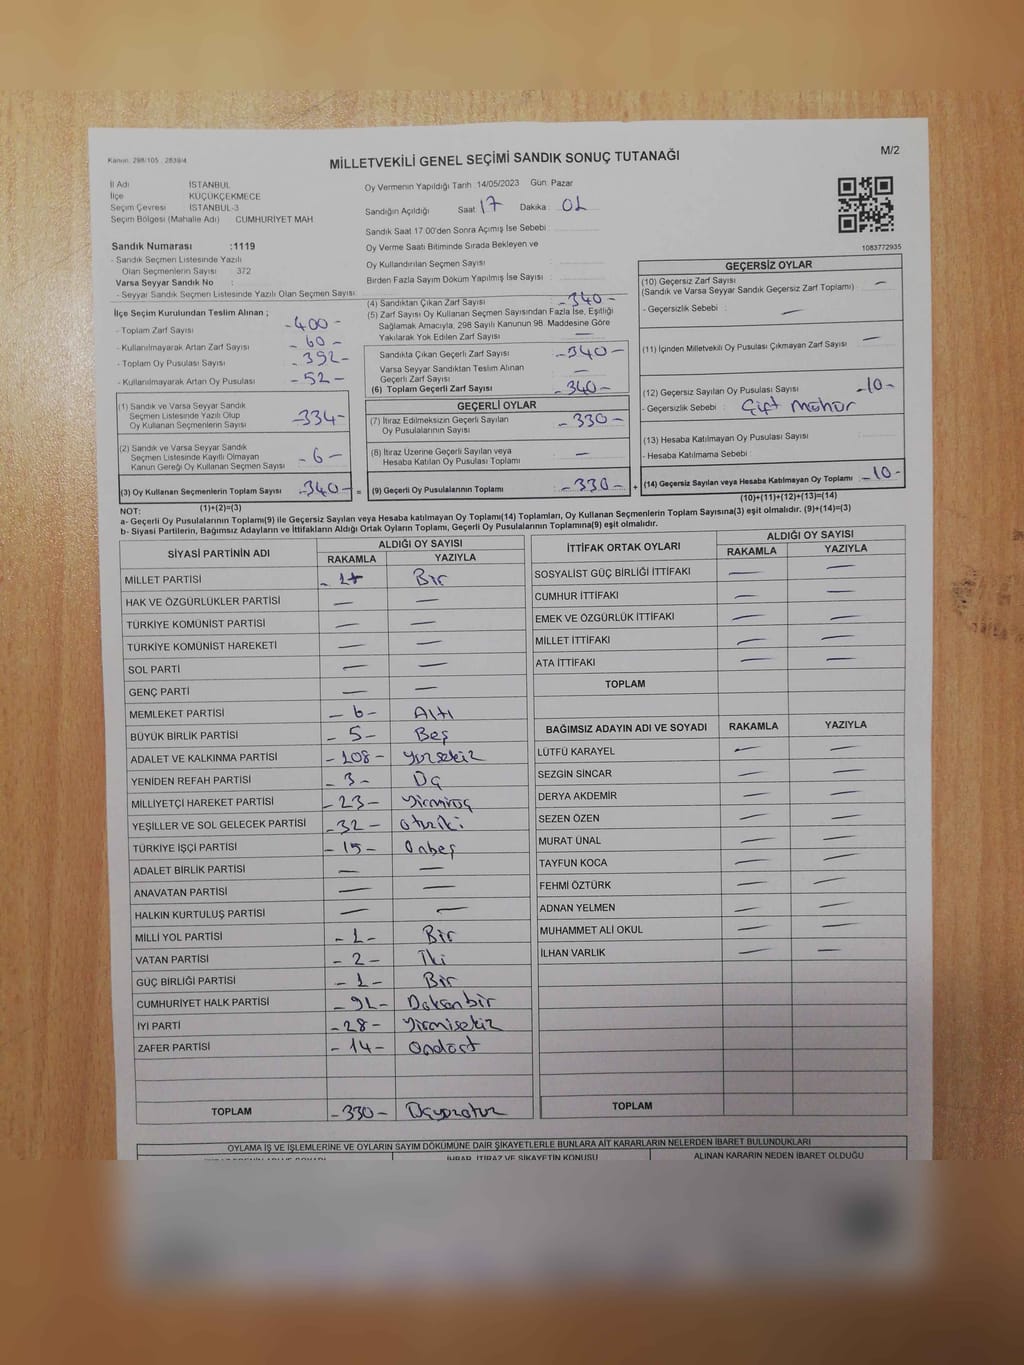 Kanun: 298/105 , 2839/4
MİLLETVEKİLİ GENEL SEÇİMİ SANDIK SONUÇ TUTANAĞI
M/2
İl Adı İSTANBUL
İlçe KÜÇÜKÇEKMECE
Seçim Çevresi İSTANBUL-3
Seçim Bölgesi (Mahalle Adı) CUMHURİYET MAH.
Sandık Numarası :1119
- Sandık Seçmen Listesinde Yazılı
Olan Seçmenlerin Sayısı : 372
Varsa Seyyar Sandık No :
- Seyyar Sandık Seçmen Listesinde Yazılı Olan Seçmen Sayısı:
Oy Vermenin Yapıldığı Tarih 14/05/2023 Gün: Pazar
Sandığın Açıldığı Saat 17 Dakika : 01
Sandık Saat 17.00'den Sonra Açımış İse Sebebi :
Oy Verme Saati Bitiminde Sırada Bekleyen ve
Oy Kullandırılan Seçmen Sayısı :
Birden Fazla Sayım Döküm Yapılmış İse Sayısı :
1083772935
İlçe Seçim Kurulundan Teslim Alınan ;
- Toplam Zarf Sayısı : -400-
- Kullanılmayarak Artan Zarf Sayısı : -60-
- Toplam Oy Pusulası Sayısı : -392-
- Kullanılmayarak Artan Oy Pusulası : -52-
(1) Sandık ve Varsa Seyyar Sandık
Seçmen Listesinde Yazılı Olup
Oy Kullanan Seçmenlerin Sayısı : -334-
(2) Sandık ve Varsa Seyyar Sandık
Seçmen Listesinde Kayıtlı Olmayan
Kanun Gereği Oy Kullanan Seçmen Sayısı : -6-
(3) Oy Kullanan Seçmenlerin Toplam Sayısı : -340- =
(4) Sandıktan Çıkan Zarf Sayısı : -340-
(5) Zarf Sayısı Oy Kullanan Seçmen Sayısından Fazla İse, Eşitliği
Sağlamak Amacıyla, 298 Sayılı Kanunun 98. Maddesine Göre
Yakılarak Yok Edilen Zarf Sayısı : —
Sandıkta Çıkan Geçerli Zarf Sayısı : -340-
Varsa Seyyar Sandıktan Teslim Alınan
Geçerli Zarf Sayısı : —
(6) Toplam Geçerli Zarf Sayısı : -340-
GEÇERLİ OYLAR
(7) İtiraz Edilmeksizin Geçerli Sayılan
Oy Pusulalarının Sayısı : -330-
(8) İtiraz Üzerine Geçerli Sayılan veya
Hesaba Katılan Oy Pusulası Toplamı : —
(9) Geçerli Oy Pusulalarının Toplamı : -330- +
GEÇERSİZ OYLAR
(10) Geçersiz Zarf Sayısı
(Sandık ve Varsa Seyyar Sandık Geçersiz Zarf Toplamı) : —
- Geçersizlik Sebebi : —
(11) İçinden Milletvekili Oy Pusulası Çıkmayan Zarf Sayısı : —
(12) Geçersiz Sayılan Oy Pusulası Sayısı : -10-
- Geçersizlik Sebebi : Çift Mühür
(13) Hesaba Katılmayan Oy Pusulası Sayısı :
- Hesaba Katılmama Sebebi :
(14) Geçersiz Sayılan veya Hesaba Katılmayan Oy Toplamı : -10-
NOT: (1)+(2)=(3)
(10)+(11)+(12)+(13)=(14)
a- Geçerli Oy Pusulalarının Toplamı(9) ile Geçersiz Sayılan veya Hesaba katılmayan Oy Toplamı(14) Toplamları, Oy Kullanan Seçmenlerin Toplam Sayısına(3) eşit olmalıdır. (9)+(14)=(3)
b- Siyasi Partilerin, Bağımsız Adayların ve İttifakların Aldığı Ortak Oyların Toplamı, Geçerli Oy Pusulalarının Toplamına(9) eşit olmalıdır.
SİYASİ PARTİNİN ADI ALDIĞI OY SAYISI
RAKAMLA YAZIYLA
MİLLET PARTİSİ - 1 Bir
HAK VE ÖZGÜRLÜKLER PARTİSİ — —
TÜRKİYE KOMÜNİST PARTİSİ — —
TÜRKİYE KOMÜNİST HAREKETİ — —
SOL PARTİ — —
GENÇ PARTİ — —
MEMLEKET PARTİSİ -6- Altı
BÜYÜK BİRLİK PARTİSİ -5- Beş
ADALET VE KALKINMA PARTİSİ -108- Yüzsekiz
YENİDEN REFAH PARTİSİ -3- Üç
MİLLİYETÇİ HAREKET PARTİSİ -23- Yirmiüç
YEŞİLLER VE SOL GELECEK PARTİSİ -32- Otuziki
TÜRKİYE İŞÇİ PARTİSİ -15- Onbeş
ADALET BİRLİK PARTİSİ — —
ANAVATAN PARTİSİ — —
HALKIN KURTULUŞ PARTİSİ — —
MİLLİ YOL PARTİSİ -1- Bir
VATAN PARTİSİ -2- İki
GÜÇ BİRLİĞİ PARTİSİ -1- Bir
CUMHURİYET HALK PARTİSİ -91- Doksanbir
İYİ PARTİ -28- Yirmisekiz
ZAFER PARTİSİ -14- Ondört
TOPLAM -330- Üçyüzotuz
İTTİFAK ORTAK OYLARI ALDIĞI OY SAYISI
RAKAMLA YAZIYLA
SOSYALİST GÜÇ BİRLİĞİ İTTİFAKI — —
CUMHUR İTTİFAKI — —
EMEK VE ÖZGÜRLÜK İTTİFAKI — —
MİLLET İTTİFAKI — —
ATA İTTİFAKI — —
TOPLAM
BAĞIMSIZ ADAYIN ADI VE SOYADI RAKAMLA YAZIYLA
LÜTFÜ KARAYEL — —
SEZGİN SİNCAR — —
DERYA AKDEMİR — —
SEZEN ÖZEN — —
MURAT ÜNAL — —
TAYFUN KOCA — —
FEHMİ ÖZTÜRK — —
ADNAN YELMEN — —
MUHAMMET ALİ OKUL — —
İLHAN VARLIK — —
TOPLAM
OYLAMA İŞ VE İŞLEMLERİNE VE OYLARIN SAYIM DÖKÜMÜNE DAİR ŞİKAYETLERLE BUNLARA AİT KARARLARIN NELERDEN İBARET BULUNDUKLARI
İHBAR, İTİRAZ VE ŞİKAYETİN KONUSU ALINAN KARARIN NEDEN İBARET OLDUĞU